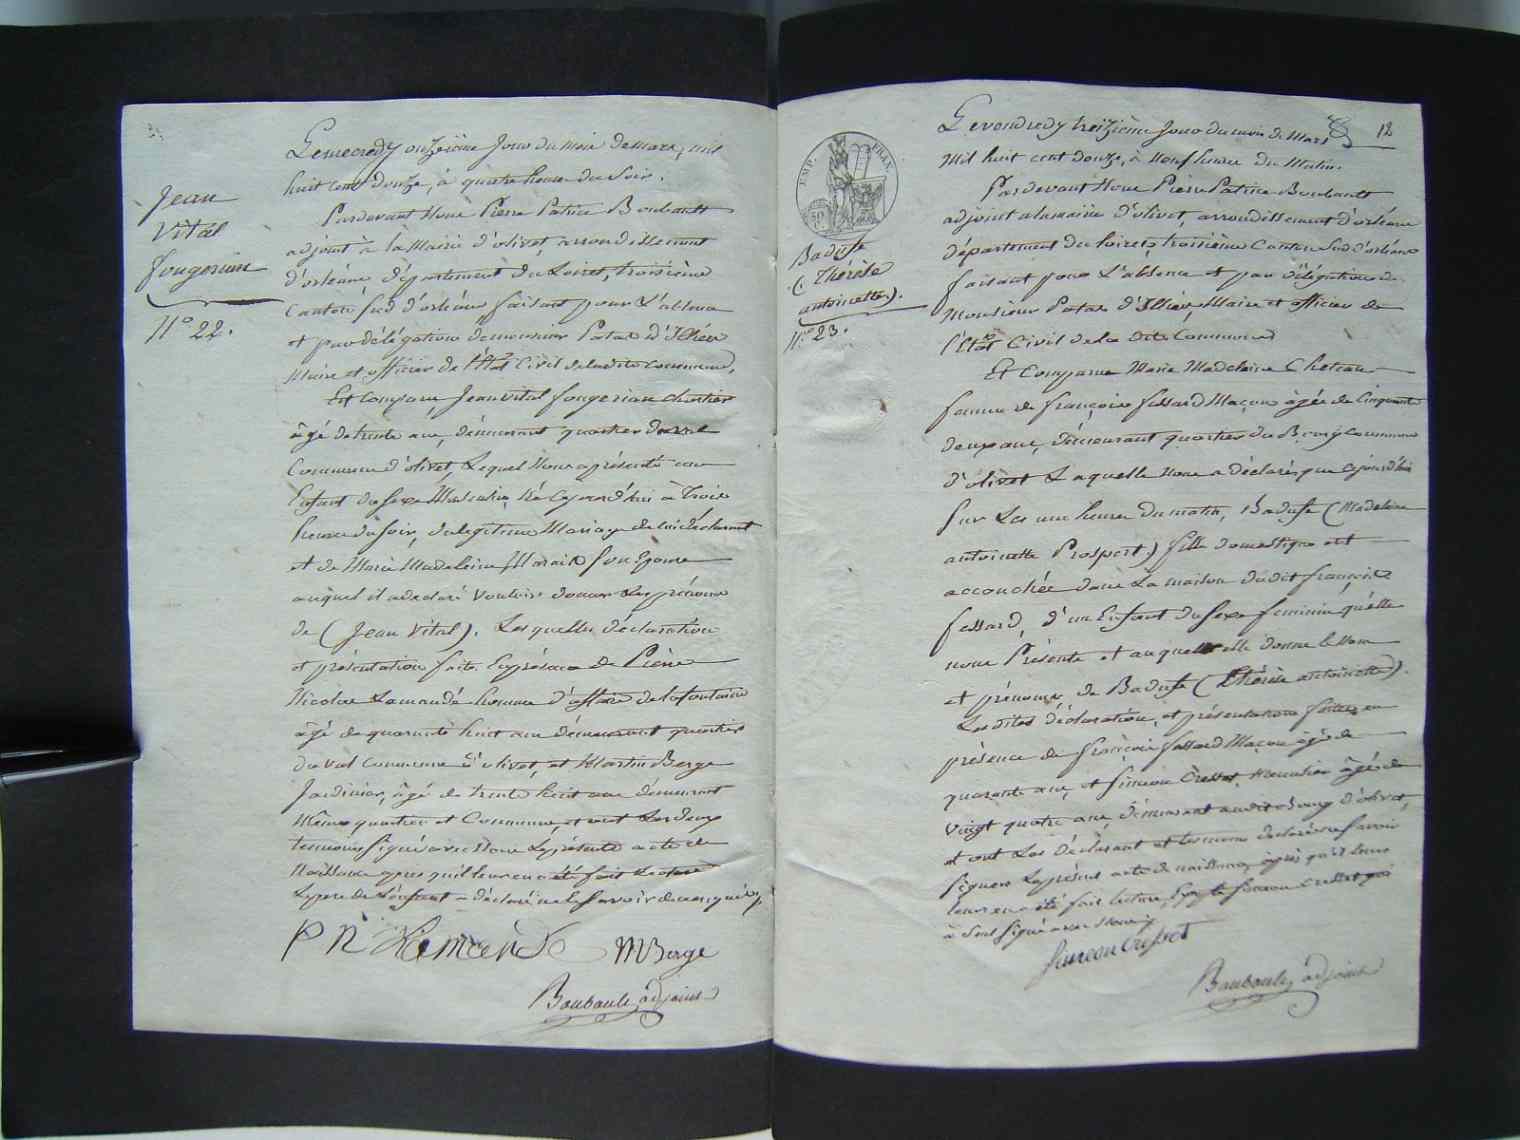 Jean
Vital
fougerian
N° 22.
Lemecredy onzième Jour du mois demars, mil
huit cent douze, à quatre heures du Soir.
Pardevant Nous Pierre Patrice Boubault
adjoint à la Mairie d'olivet arrondissement
d'orléans, département du Loiret, troisième
Canton Sud d'orléans faisant pour L'absence
et par délégation demonsieur Patas d'Illiers
Maire et officier de l'Etat Civil deladite commune,
Est Comparu Jean vital fougerian
âgé de trente ans, démeurant quartier du val
Commune d'olivet, Lequel Nous a présenté un
Enfant du Sexe Masculin, né Cejourd'hui à Trois
heures du Soir, du légitime Mariage de lui déclarant
et de Marie Madeleine Marais Son Epouse
auquel il a déclaré Vouloir donner Les prénoms
de (Jean Vital). Lesquelles déclaration
et présentation faite En présence de Pierre
Nicolas Lamandé homme d'affaire de lafontaine
âgé de quarante huit ans démeurant quartier
Du val Commune d'olivet, et Martin Berge
Jardinier, âgé de trente huit ans démeurant
Même quartier et Commune, et ont Les deux
temoins Signé avec Nous Le présent acte de
Naissance après qu'il leur en a été fait Lecture
Le pere de L'enfant a déclaré ne le Savoir de ce enquis,
P N Lamandé MBerge
Boubault, adjoint
EMP. FRAN.
50
Badufe
(Thérèse
antoinette).
N° 23.
12
Le vendredy treizième Jour du mois de Mars
Mil huit cent douze, à Neuf heures du Matin.
Pardevant Nous Pierre Patrice Boubault
adjoint a lamairie d'olivet, arrondissement d'orléans
département du Loiret, troisième Canton Sud d'orléans
faisant pour L'absence et par délégation de
Monsieur Patas d'Illiers, Maire et officier de
l'Etat Civil de la dite Commune
Est Comparue Marie Madeleine Cheteau
femme de françois fessard Maçon âgée de Cinquante
deux ans, démeurant quartier du Bourg Commune
d'olivet Laquelle nous a déclaré que cejourd'hui
Sur Les une heures du matin, Badufe (Madeleine
antoinette Prospert) fille domestique est
accouchée dans La maison dudit françois
fessard, d'un Enfant du Sexe feminin qu'elle
nous Présente et auquel elle donne le Nom
et prénoms de Badufe (Thérèse antoinette).
Lesdites déclaration, et présentation faites en
présence de françois fessard Maçon âgé de
quarante ans, et Simeon Cresset, Menuisier âgé de
vingt quatre ans, démeurant audit bourg d'olivet,
et ont Les déclarant et temoins déclaré ne Savoir
Signer Le présent acte de naissance, après qu'il leur
leur en a été fait lecture, Simeon Cresset qui
a Seul Signé avec Nous
Simeon Cresset
Boubault, adjoint